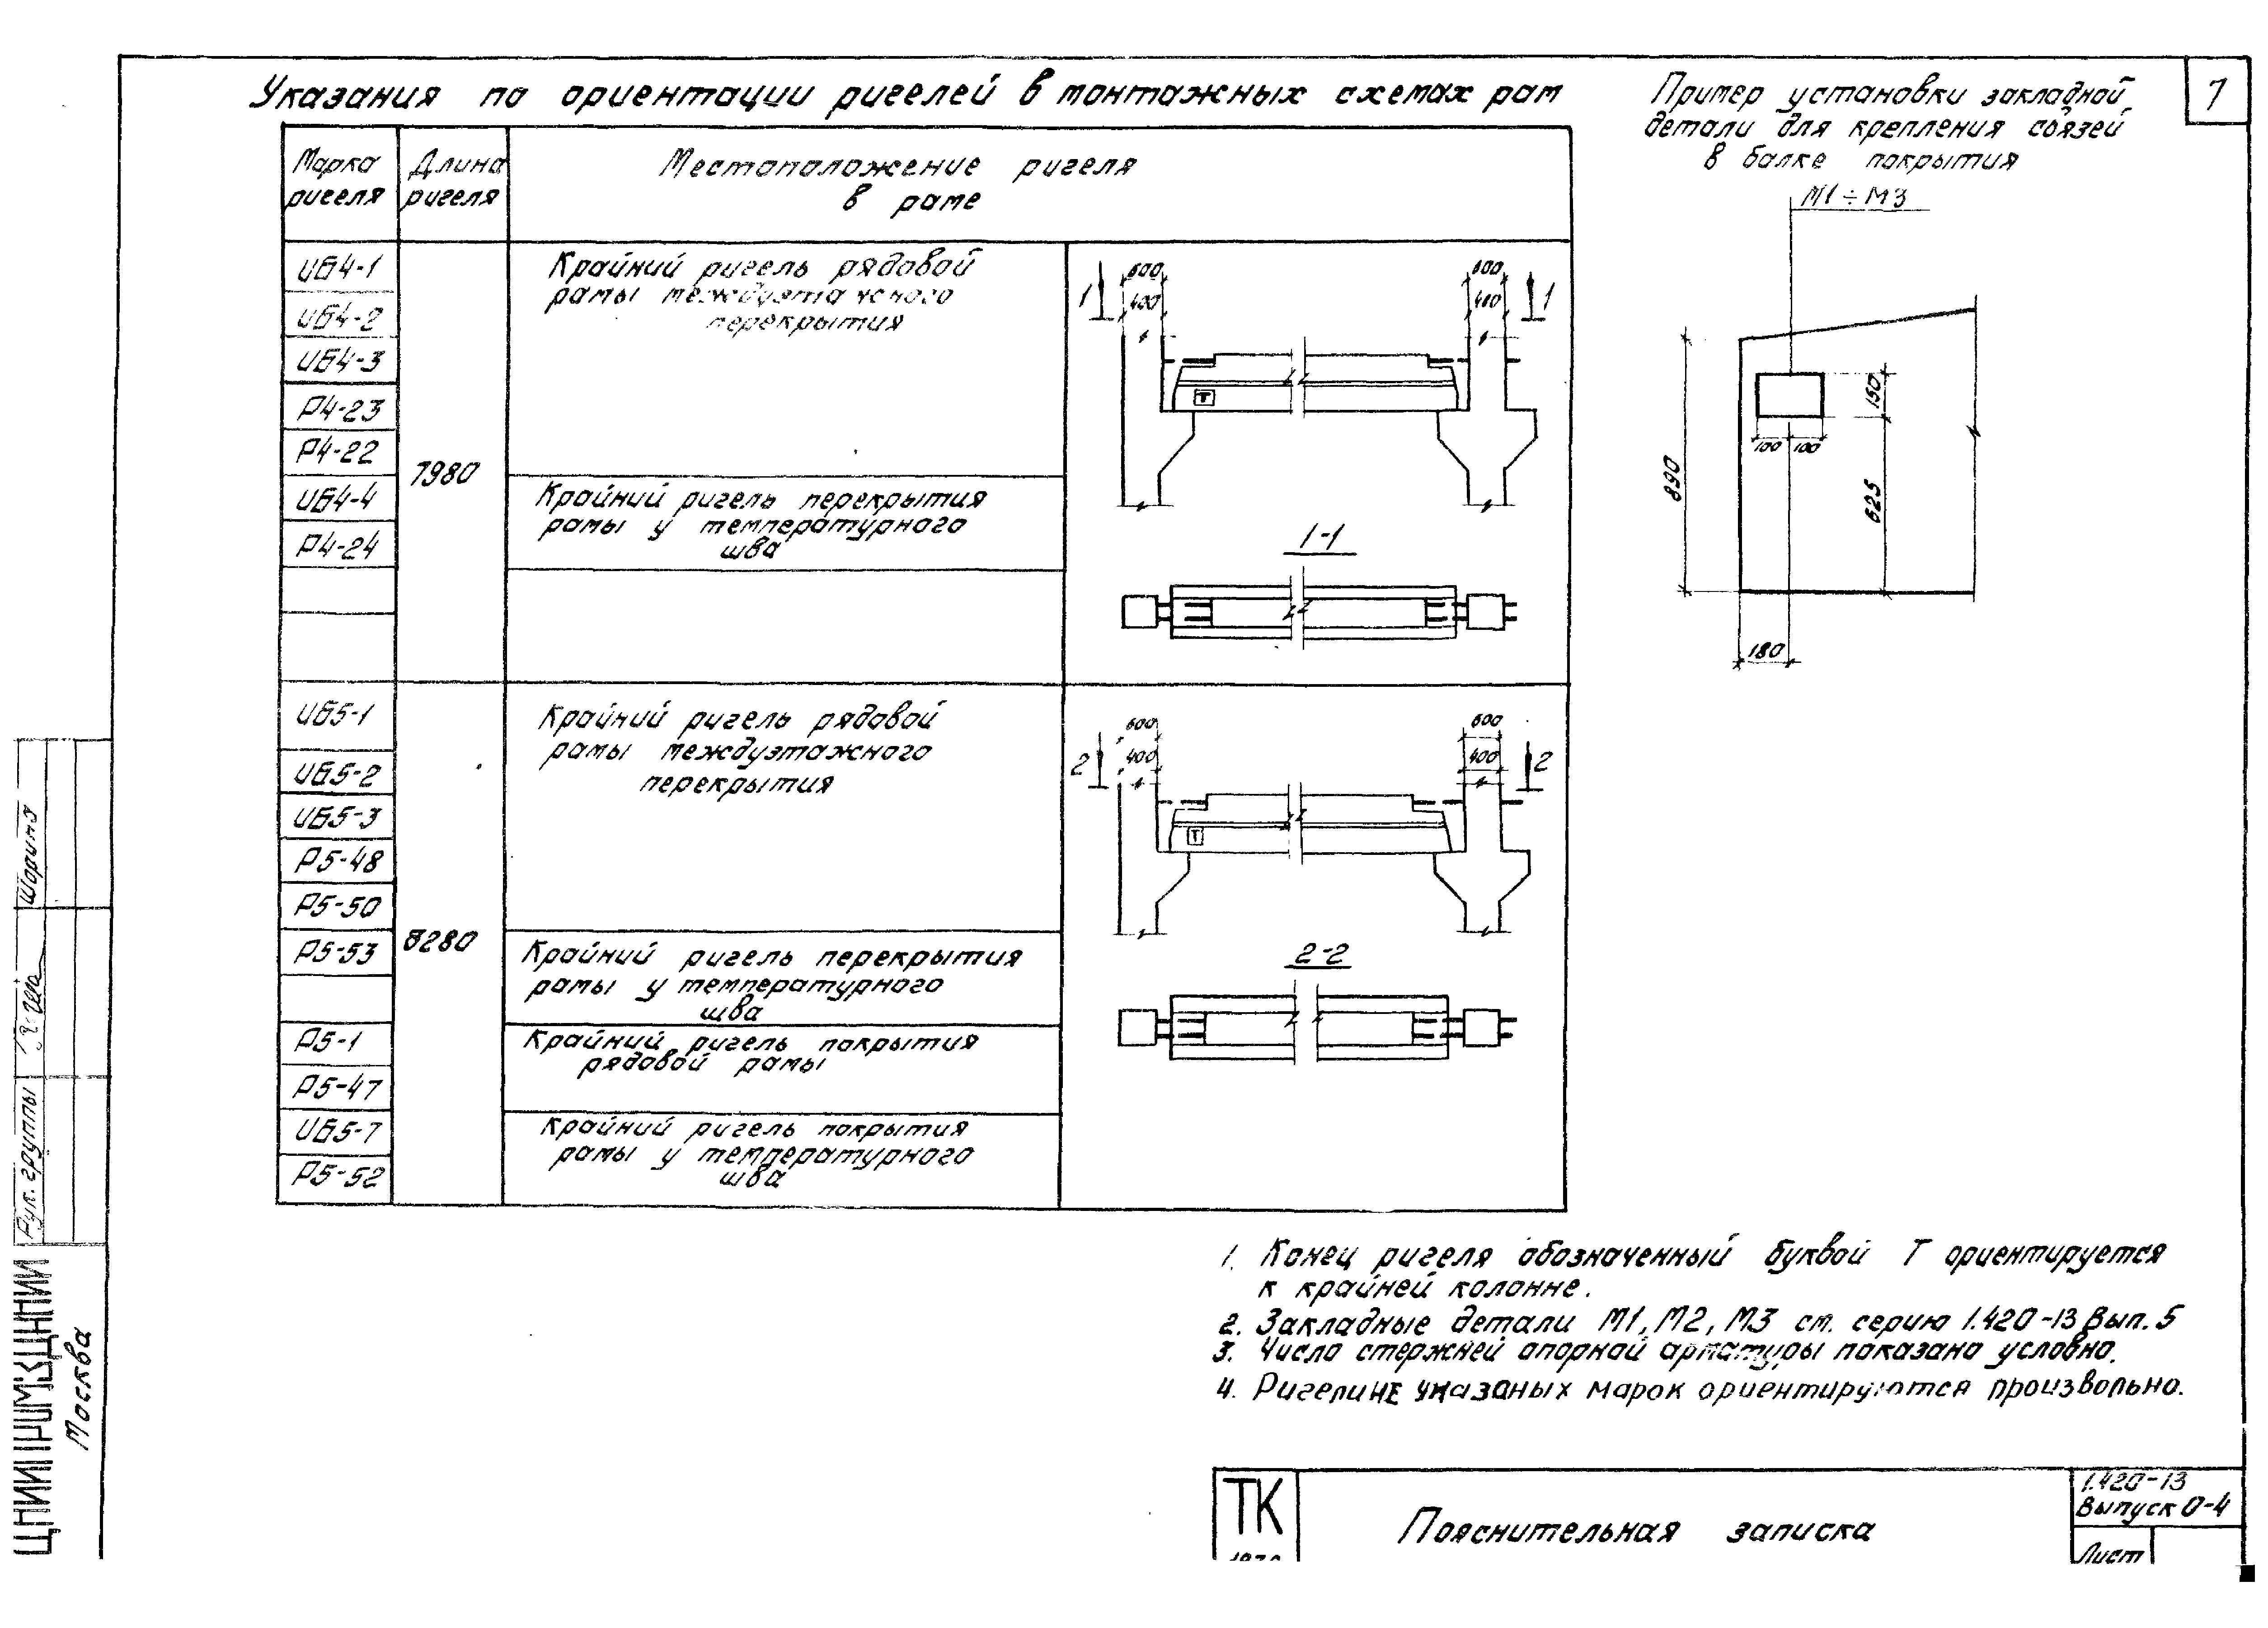 Указания по ориентации ригелей в монтажных схемах рам
Пример установки закладной
детали для крепления связей
в балке покрытия
7
М1÷М3
Марка
ригеля
Длина
ригеля
Местоположение ригеля
в раме
ИБ4-1
ИБ4-2
ИБ4-3
Р4-23
Р4-22
ИБ4-4
Р4-24
7980
Крайний ригель рядовой
рамы междуэтажного
перекрытия
Крайний ригель перекрытия
рамы у температурного
шва
600
400
600
400
1
1
Т
1-1
890
150
100
100
625
180
ИБ5-1
ИБ5-2
ИБ5-3
Р5-48
Р5-50
Р5-53
Р5-1
Р5-47
ИБ5-7
Р5-52
8280
Крайний ригель рядовой
рамы междуэтажного
перекрытия
Крайний ригель перекрытия
рамы у температурного
шва
Крайний ригель покрытия
рядовой рамы
Крайний ригель покрытия
рамы у температурного
шва
600
400
600
400
2
2
Т
2-2
1. Конец ригеля обозначенный буквой Т ориентируется
к крайней колонне.
2. Закладные детали М1, М2, М3 см. серию 1.420-13 Вып. 5
3. Число стержней опорной арматуры показано условно.
4. Ригели НЕ указаных марок ориентируются произвольно.
ТК
Пояснительная записка
1.420-13
Выпуск 0-4
Лист
Рук. группы
Шорина
ЦНИИПРОМЗДАНИЙ
Москва